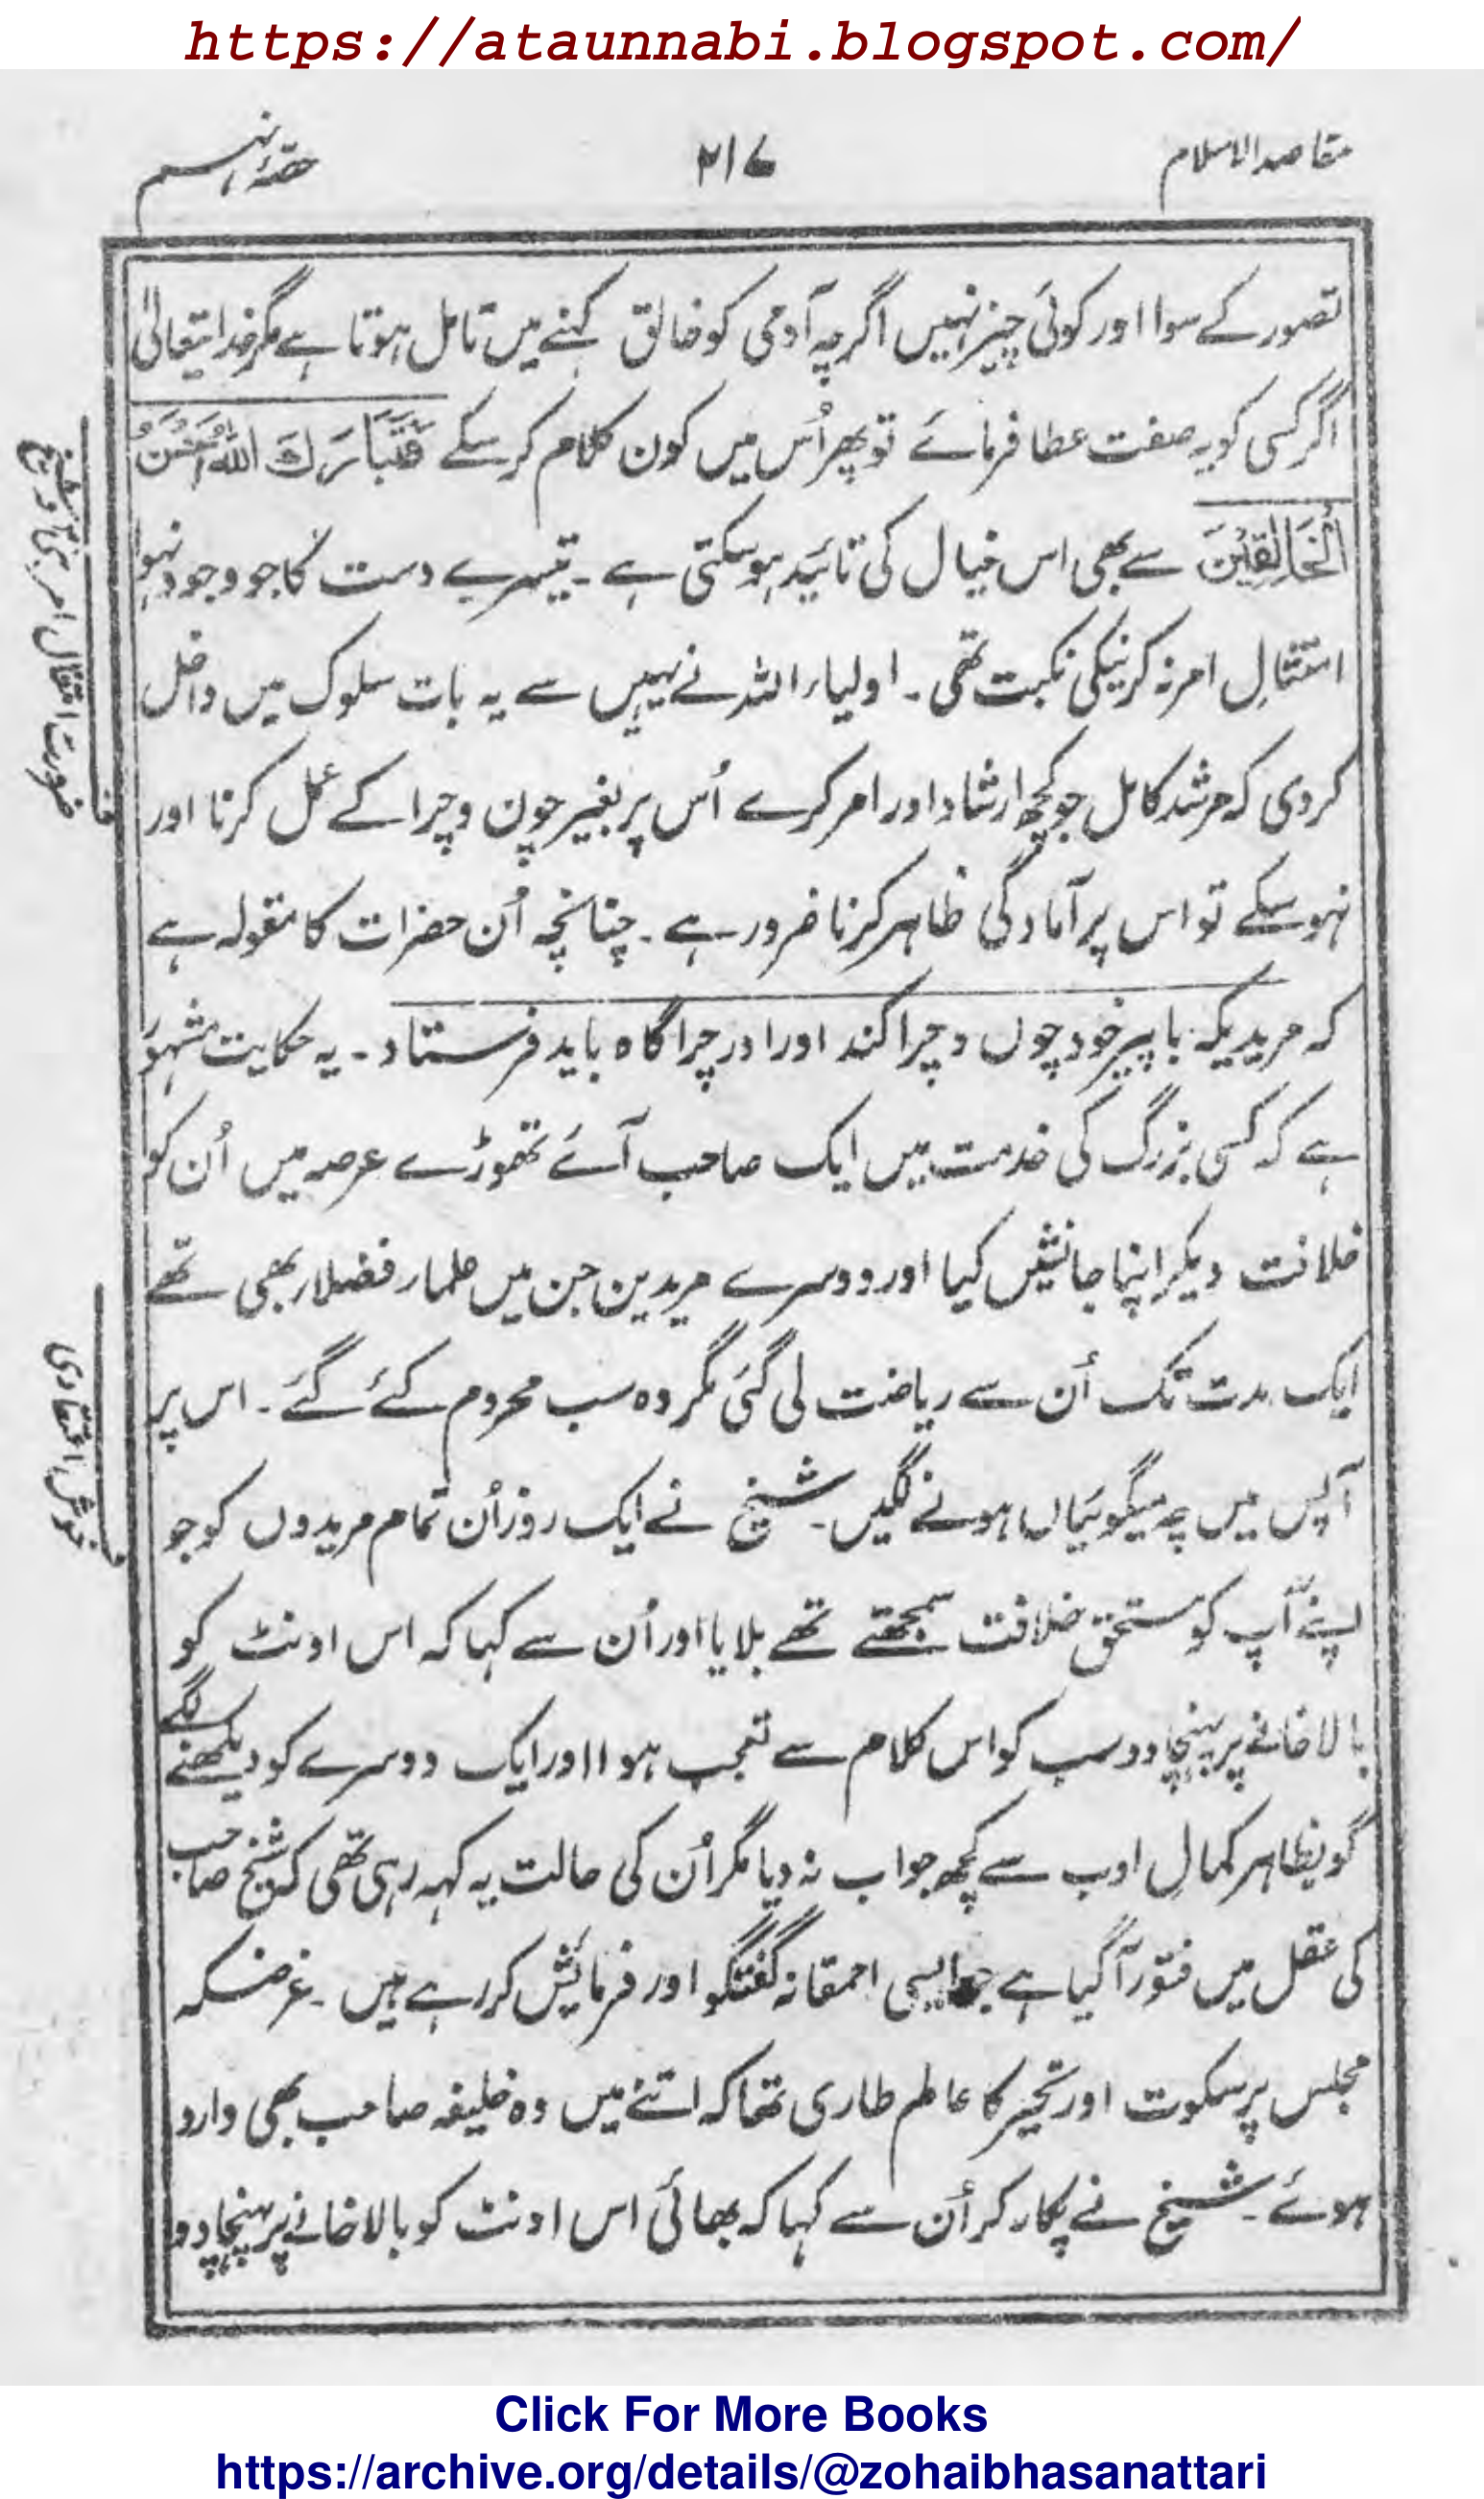 https://ataunnabi.blogspot.com/
مقاصد الاسلام ۲۱۷ حصۂ نہم
تصور کے سوا اور کوئی چیز نہیں اگرچہ آدمی کو خالق کہنے میں تامل ہوتا ہے مگر خدایتعالیٰ
اگر کسی کو یہ صفت عطا فرمائے تو پھر اُس میں کون کلام کر سکے فَتَبَارَكَ اللّٰهُ اَحْسَنُ
الْخَالِقِيْنَ سے بھی اس خیال کی تائید ہو سکتی ہے ۔ تیسرے دست کا جو وجود نہوا
امتثالِ امر نہ کرنیکی نکبت تھی ۔ اولیاء اللہ نے یہیں سے یہ بات سلوک میں داخل
کر دی کہ مرشد کامل جو کچھ ارشاد اور امر کرے اُس پر بغیر چون و چرا کے عمل کرنا اور
نہو سکے تو اس پر آمادگی ظاہر کرنا ضرور ہے ۔ چنانچہ اُن حضرات کا مقولہ ہے
کہ مریدیکہ با پیر خود چوں و چرا کند اورا در چراگاہ باید فرستاد ۔ یہ حکایت مشہور
ہے کہ کسی بزرگ کی خدمت میں ایک صاحب آئے تھوڑے عرصہ میں اُن کو
خلافت دیکر اپنا جانشیں کیا اور دوسرے مریدین جن میں علماء فضلاء بھی تھے
ایک مدت تک اُن سے ریاضت لی گئی مگر وہ سب محروم کئے گئے ۔ اس پر
آپس میں چہ میگوئیاں ہونے لگیں ۔ شیخ نے ایک روز اُن تمام مریدوں کو جو
اپنے آپ کو مستحق خلافت سمجھتے تھے بلایا اور اُن سے کہا کہ اس اونٹ کو
بالا خانے پر پہنچا دو سب کو اس کلام سے تعجب ہوا اور ایک دوسرے کو دیکھنے لگے
گو بظاہر کمالِ ادب سے کچھ جواب نہ دیا مگر اُن کی حالت یہ کہہ رہی تھی کہ شیخ صاحب
کی عقل میں فتور آگیا ہے جو ایسی احمقانہ گفتگو اور فرمایش کر رہے ہیں ۔ غرضکہ
مجلس پر سکوت اور تحیر کا عالم طاری تھا کہ اتنے میں وہ خلیفہ صاحب بھی وارد
ہوئے ۔ شیخ نے پکار کر اُن سے کہا کہ بھائی اس اونٹ کو بالا خانے پر پہنچا دو
ضرورت امتثال امر
خوش اعتقادی
Click For More Books
https://archive.org/details/@zohaibhasanattari